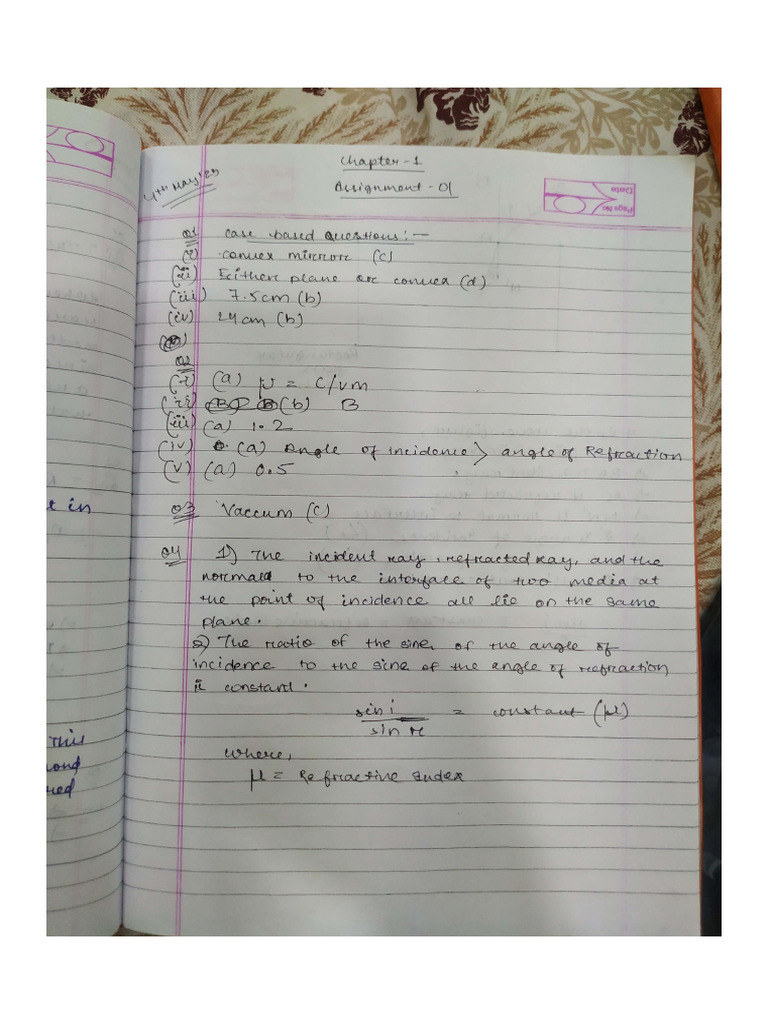 Chapter-1
4th May'25
Assignment - 01
Date
Page No
Q1 case based Questions:-
(i) convex mirror (c)
(ii) Eithere plane or convex (d)
(iii) 7.5cm (b)
(iv) 24cm (b)
Q2
(i) (a) μ = c/vm
(ii) (b) B
(iii) (a) 1.2
(iv) (a) Angle of incidence > angle of Refraction
(v) (a) 0.5
t in
Q3 Vaccum (c)
Q4 1) The incident ray, refracted ray, and the
normal to the interface of two media at
the point of incidence all lie on the same
plane.
2) The ratio of the sine of the angle of
incidence to the sine of the angle of refraction
is constant.
sin i
= constant (μ)
sin r
This
where,
ond
μ = Refractive Index
red